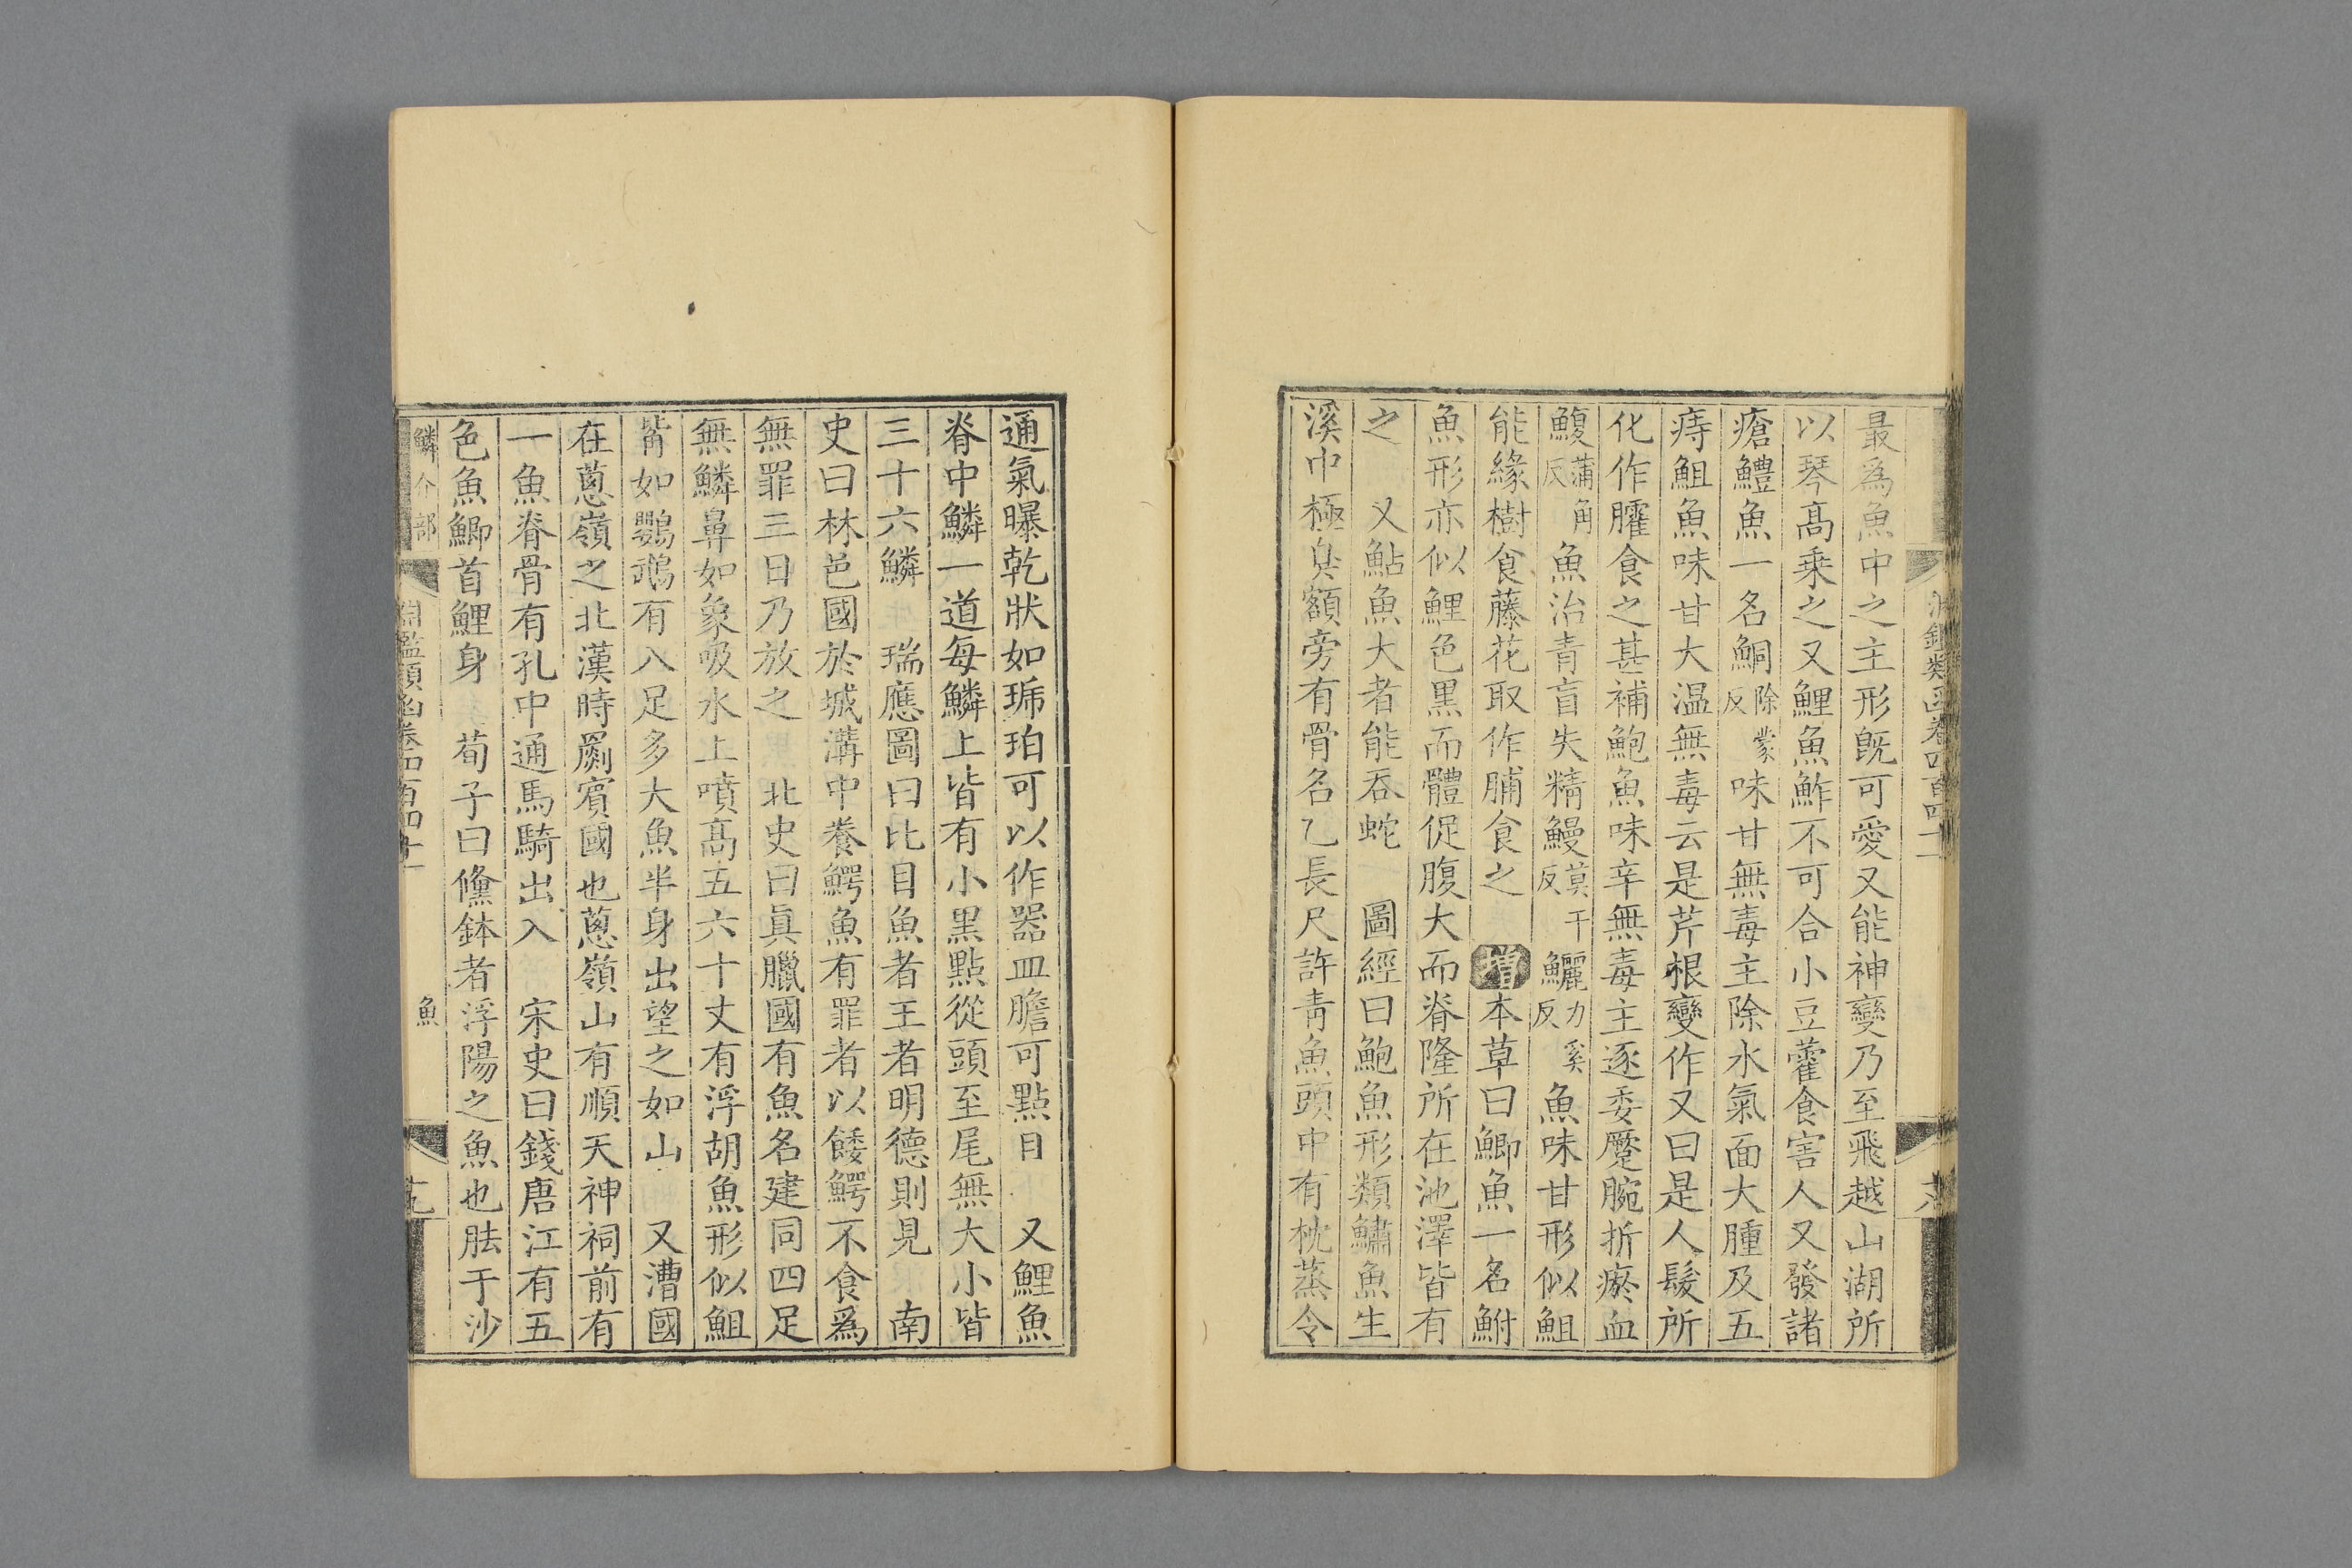 最為魚中之主形既可愛又能神變乃至飛越山湖所
以琴高乗之又鯉魚鮓不可合小豆藿食害人又發諸
瘡鱧魚一名鮦除蒙反味甘無毒主除水氣面大腫及五
痔䱉魚味甘大温無毒云是芹根變作又曰是人髮所
化作臛食之甚補鮑魚味辛無毒主逐委蹷腕折瘀血
鰒蒲角反魚治青盲失精鰻莫干反鱺力奚反魚味甘形似䱉
能緣樹食藤花取作脯食之 增本草曰鯽魚一名鮒
魚形亦似鯉色黒而體促腹大而脊隆所在池澤皆有
之 又鮎魚大者能吞蛇 圖經曰鮑魚形類鱐魚生
溪中極臭額旁有骨名乙長尺許青魚頭中有枕蒸令
通氣曝乾狀如琥珀可以作器皿膽可點目 又鯉魚
脊中鱗一道毎鱗上皆有小黒點從頭至尾無大小皆
三十六鱗 瑞應圖曰比目魚者王者明德則見 南
史曰林邑國於城溝中養鰐魚有罪者以餧鰐不食爲
無罪三日乃放之 北史曰真臘國有魚名建同四足
無鱗鼻如象吸水上噴高五六十丈有浮胡魚形似䱉
觜如鸚鵡有八足多大魚半身出望之如山 又漕國
在蔥嶺之北漢時罽賓國也蔥嶺山有順天神祠前有
一魚脊骨有孔中通馬騎出入 宋史曰錢唐江有五
色魚鯽首鯉身 荀子曰鯈䱁者浮陽之魚也胠于沙
鱗介部
淵鑑類函卷四百四十一
魚